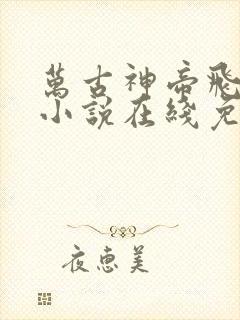 萬古神帝飛
小說在綫免
夜恵美